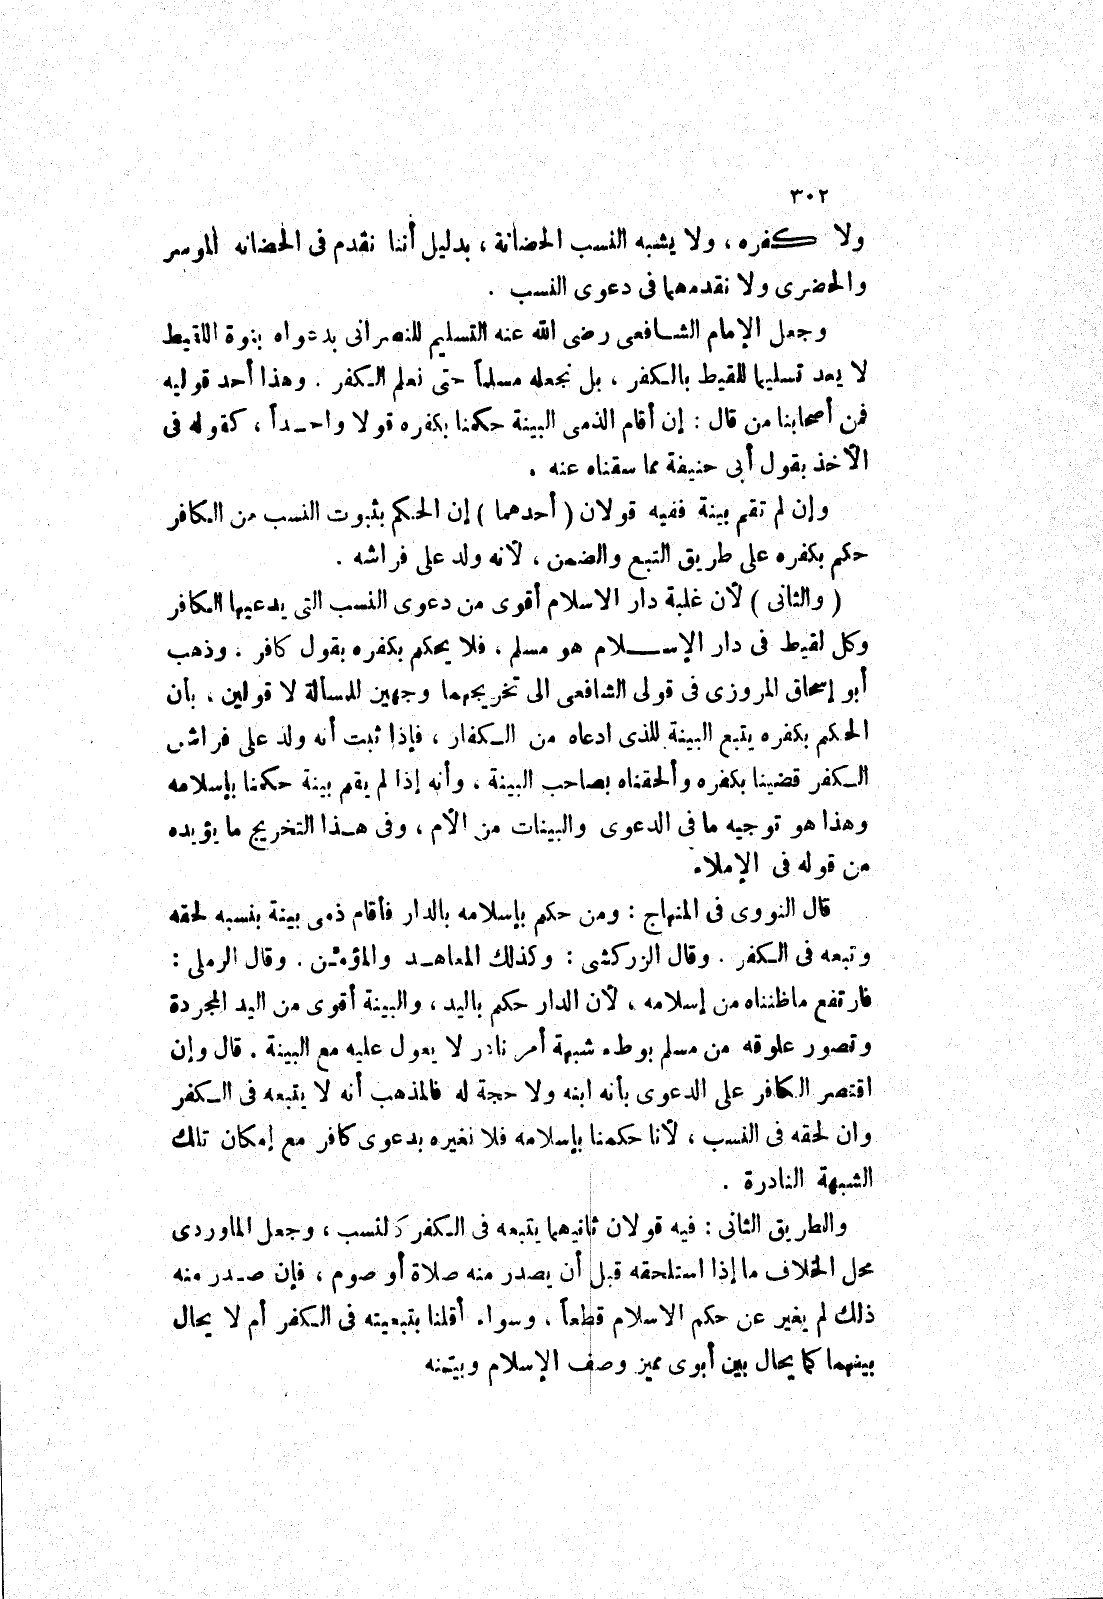 ٣٠٢
ولا كفره ، ولا يشبه النسب الحضانة ، بدليل أننا نقدم فى الحضانه الموسر
والحضرى ولا نقدمهما فى دعوى النسب .
وجعل الإمام الشافعى رضى الله عنه التسليم للنصرانى بدعواه بنوة اللقيط
لا يعد تسليما للقيط بالكفر ، بل نجعله مسلماً حتى نعلم الكفر . وهذا أحد قوليه
فمن أصحابنا من قال : إن أقام الذمى البينة حكمنا بكفره قولا واحداً ، كقوله فى
الآخذ بقول أبى حنيفة مما سقناه عنه .
وإن لم تقم بينة ففيه قولان ( أحدهما ) إن الحكم بثبوت النسب من الكافر
حكم بكفره على طريق التبع والضمن ، لآنه ولد على فراشه .
( والثانى ) لآن غلبة دار الاسلام أقوى من دعوى النسب التى يدعيها الكافر
وكل لقيط فى دار الإسلام هو مسلم ، فلا يحكم بكفره بقول كافر . وذهب
أبو إسحاق المروزى فى قولى الشافعى الى تخريجهما وجهين للمسألة لا قولين ، بأن
الحكم بكفره يتبع البينة للذى ادعاه من الكفار ، فإذا ثبت أنه ولد على فراش
الكفر قضينا بكفره وألحقناه بصاحب البينة ، وأنه إذا لم يقم بينة حكمنا بإسلامه
وهذا هو توجيه ما فى الدعوى والبينات من الأم ، وفى هذا التخريج ما يؤيده
من قوله فى الإملاء
قال النووى فى المنهاج : ومن حكم بإسلامه بالدار فأقام ذمى بينة بنسبه لحقه
وتبعه فى الكفر . وقال الزركشى : وكذلك المعاهد والمؤمن . وقال الرملى :
فارتفع ماظنناه من إسلامه ، لآن الدار حكم باليد ، والبينة أقوى من اليد المجردة
وتصور علوقه من مسلم بوطء شبهة أمر نادر لا يعول عليه مع البينة . قال وإن
اقتصر الكافر على الدعوى بأنه ابنه ولا حجة له فالمذهب أنه لا يتبعه فى الكفر
وان لحقه فى النسب ، لآنا حكمنا بإسلامه فلا نغيره بدعوى كافر مع إمكان تلك
الشبهة النادرة .
والطريق الثانى : فيه قولان ثانيهما يتبعه فى الكفر كالنسب ، وجعل الماوردى
محل الخلاف ما إذا استلحقه قبل أن يصدر منه صلاة أو صوم ، فإن صدر منه
ذلك لم يغير عن حكم الاسلام قطعاً ، وسواء أقلنا بتبعيته فى الكفر أم لا يحال
بينهما كما يحال بين أبوى مميز وصف الإسلام وبيتنه